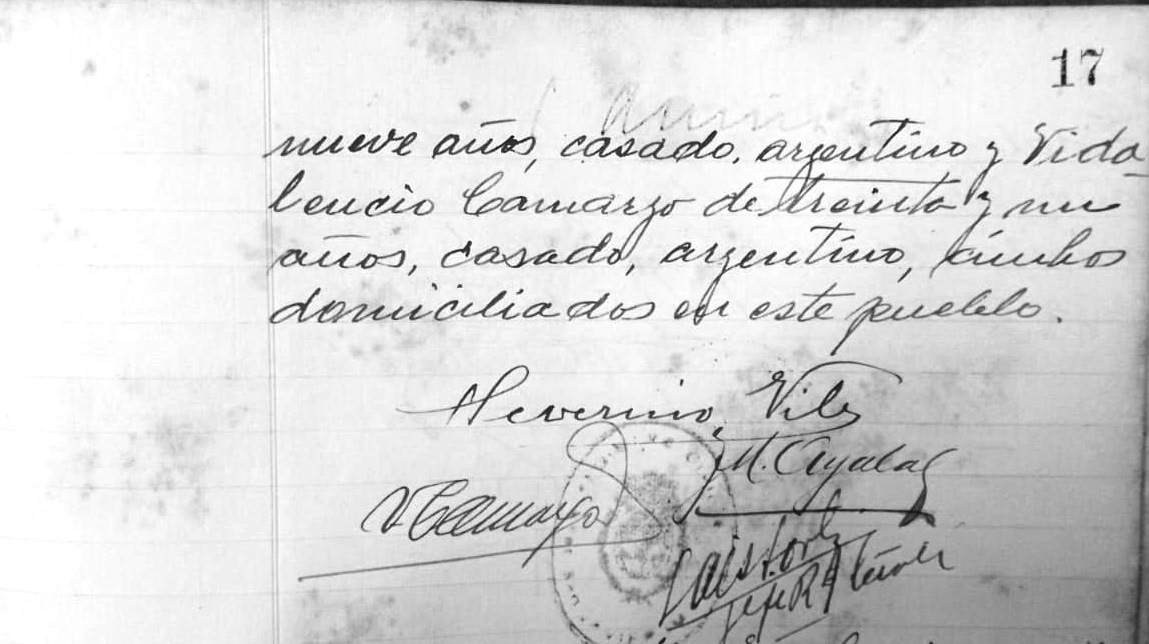 17
nueve años, casado, argentino y Vida
lencio Camargo de treinta y un
años, casado, argentino, ámbos
domiciliados en este pueblo.
Severino Vila
M. Ayala
V Camargo
Luis
Jefe R